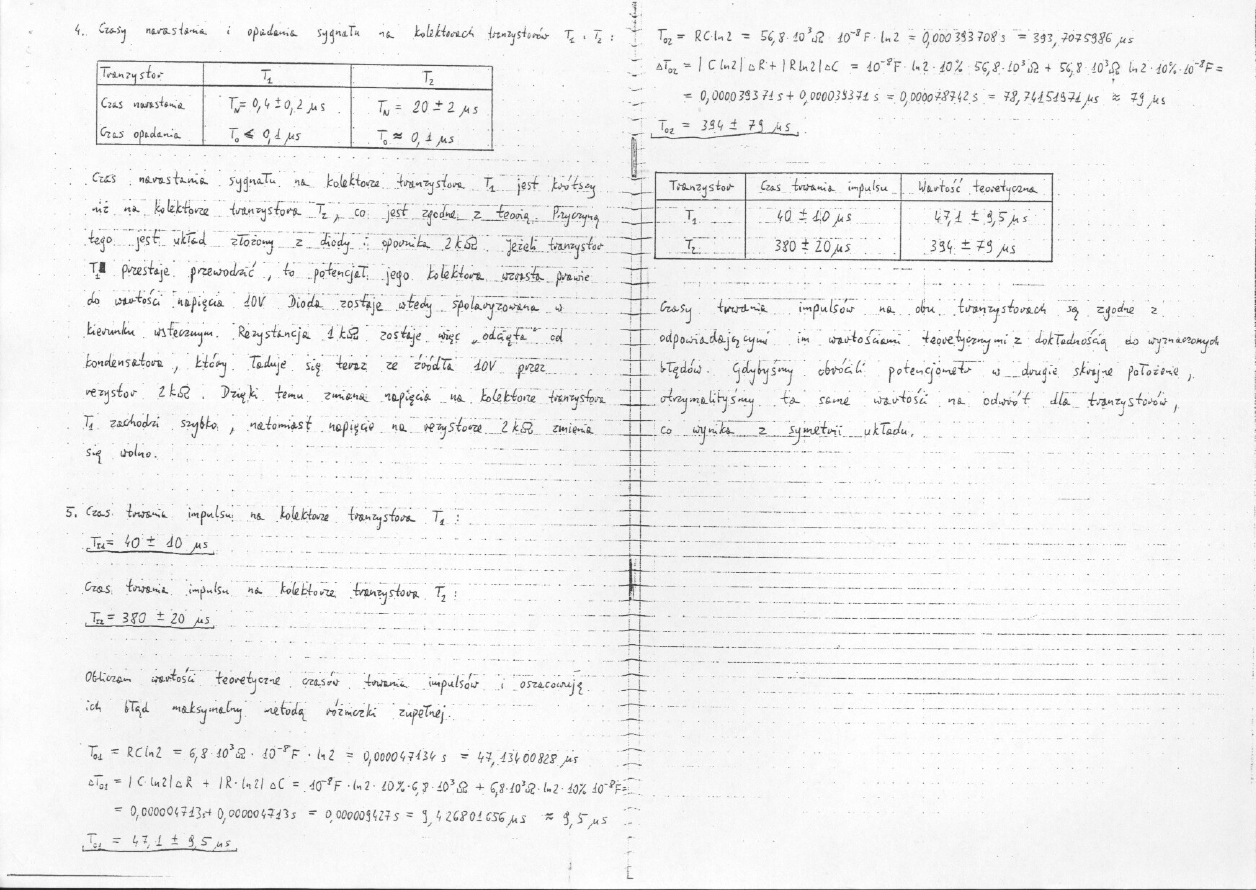 4. Czasy narastania i opadania sygnału na kolektorach tranzystorów T₁ i T₂ :
Tranzystor T₁ T₂
Czas narastania T_N = 0,4 ± 0,2 μs T_N = 20 ± 2 μs
Czas opadania T_o ≤ 0,1 μs T_o ≈ 0,1 μs
Czas narastania sygnału na kolektorze tranzystora T₁ jest krótszy
niż na kolektorze tranzystora T₂, co jest zgodne z teorią. Przyczyną
tego jest układ złożony z diody i opornika 2 kΩ. Jeżeli tranzystor
T₁ przestaje przewodzić, to potencjał jego kolektora wzrasta prawie
do wartości napięcia 10V Dioda zostaje wtedy spolaryzowana w
kierunku wstecznym. Rezystancja 1 kΩ zostaje więc „odcięta" od
kondensatora, który ładuje się teraz ze źródła 10V przez
rezystor 2 kΩ. Dzięki temu zmiana napięcia na kolektorze tranzystora
T₁ zachodzi szybko, natomiast napięcie na rezystorze 2 kΩ zmienia
się wolno.
5. Czas trwania impulsu na kolektorze tranzystora T₁ :
= 40 ± 10 μs
Czas trwania impulsu na kolektorze tranzystora T₂ :
= 380 ± 20 μs
Obliczam wartości teoretyczne czasów trwania impulsów i oszacowuję
ich błąd maksymalny metodą różniczki zupełnej.
T₀₁ = RC ln2 = 6,8·10³Ω · 10⁻⁸F · ln2 = 0,000047134 s = 47,13400828 μs
ΔT₀₁ = |C·ln2|ΔR + |R·ln2|ΔC = 10⁻⁸F · ln2 · 10%·6,8·10³Ω + 6,8·10³Ω·ln2·10% 10⁻⁸F=
= 0,000004713s + 0,000004713s = 0,000009427s = 9,426801656 μs ≈ 9,5 μs
T₀₁ = 47,1 ± 9,5 μs
T₀₂ = RC·ln2 = 56,8·10³Ω · 10⁻⁸F · ln2 = 0,000393708 s = 393,7075986 μs
ΔT₀₂ = |C ln2|ΔR + |R ln2|ΔC = 10⁻⁸F · ln2 · 10% · 56,8·10³Ω + 56,8·10³Ω ln2·10%·10⁻⁸F =
= 0,000039371 s + 0,000039371 s = 0,000078742 s = 78,74151971 μs ≈ 79 μs
T₀₂ = 394 ± 79 μs
Tranzystor Czas trwania impulsu Wartość teoretyczna
T₁ 40 ± 10 μs 47,1 ± 9,5 μs
T₂ 380 ± 20 μs 394 ± 79 μs
Czasy trwania impulsów na obu tranzystorach są zgodne z
odpowiadającymi im wartościami teoretycznymi z dokładnością do wyznaczonych
błędów. Gdybyśmy obrócili potencjometr w drugie skrajne położenie,
otrzymalibyśmy te same wartości na odwrót dla tranzystorów,
co wynika z symetrii układu.